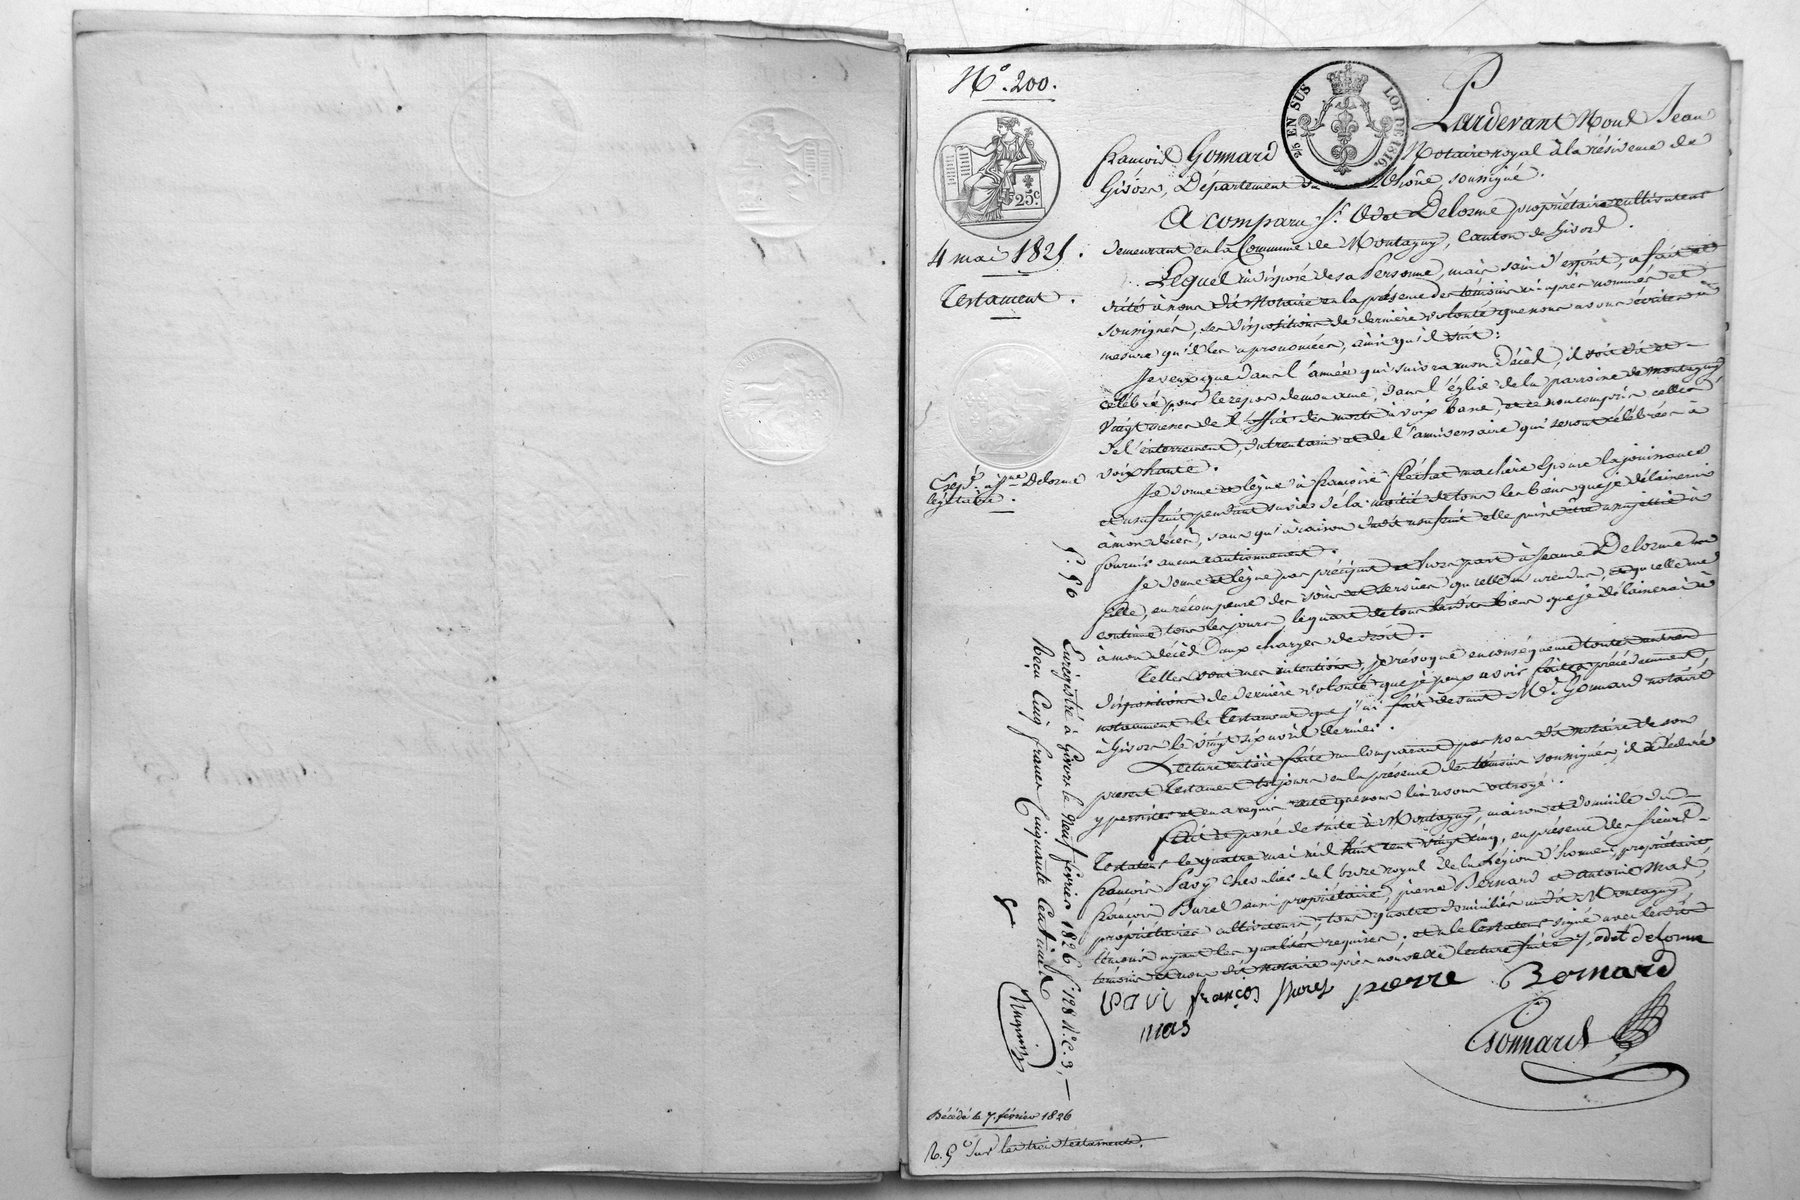 N.° 200.
25 EN SUS
LOI DE 1816.
25.c
4 mai 1825.
Testament.
Exp.ée à J.ne Delorme
légataire.
Pardevant Nous Jean
françois Gonnard Notaire royal à la résidence de
Givors, Département du Rhône, soussigné.
A comparu S.r Odet Delorme propriétaire cultivateur
demeurant en la Commune de Montagny, Canton de Givors.
Lequel indisposé de sa Personne, mais sain d'esprit, a fait et
dicté à nous dit Notaire en la présence des témoins ci après nommés et
soussignés, ses dispositions de dernière volonté que nous avons écrites à
mesure qu'il les a prononcées, ainsi qu'il suit:
Je veux que dans l'année qui suivra mon Décès, il soit dit et
célébré pour le repos de mon ame, dans l'église de la paroisse de Montagny
vingt messes de l'office des morts à voix basse, et ce non compris celles
de l'enterrement, du trentain et de l'anniversaire qui seront célébrées à
voix haute.
Je donne et lègue à françoise fléchet ma chère Epouse la jouissance
et usufruit pendant sa vie de la moitié de tous les biens que je délaisserai
à mon décès, sans qu'à raison dudit usufruit elle puisse être assujettie à
fournir aucun cautionnement.
Je donne et lègue par préciput et hors part à Jeanne Delorme ma
fille, en récompense des soins et services qu'elle m'a rendus, et qu'elle me
continue tous les jours, le quart de tous les dits biens que je délaisserai à
à mon décès aux charges de droit.
Telles sont mes intentions, je révoque en conséquence toutes autres
dispositions de dernière volonté que je peux avoir faites précédemment
notamment le Testament que j'ai fait devant M.e Gonnard notaire
à Givors le vingt six avril dernier.
Lecture entière faite au Comparant par nous dit notaire de son
présent Testament toujours en la présence des témoins soussignés, il a déclaré
y persister et en a requis acte que nous lui avons octroyé.
Fait et passé de suite à Montagny, maison et domicile du
Testateur le quatre mai mil huit cent vingt cinq, en présence des sieurs
françois Pavy Chevalier de l'ordre royal de la Légion d'honneur, propriétaire,
françois Burel aussi propriétaire, pierre Bernard et antoine Mas,
propriétaires cultivateurs, tous quatre domiciliés audit Montagny,
témoins ayant les qualités requises. et a le testateur signé avec lesdits
témoins et nous dit notaire après nouvelle lecture faite. odet delorme
pavi françois Burel pierre Bernard
mas
Gonnard
Enregistré à Givors le Neuf février 1826 f.° 128 R.° C. 3,
Reçu Cinq francs Cinquante Centimes
Décédé le 7. février 1826
sur les trois testaments.